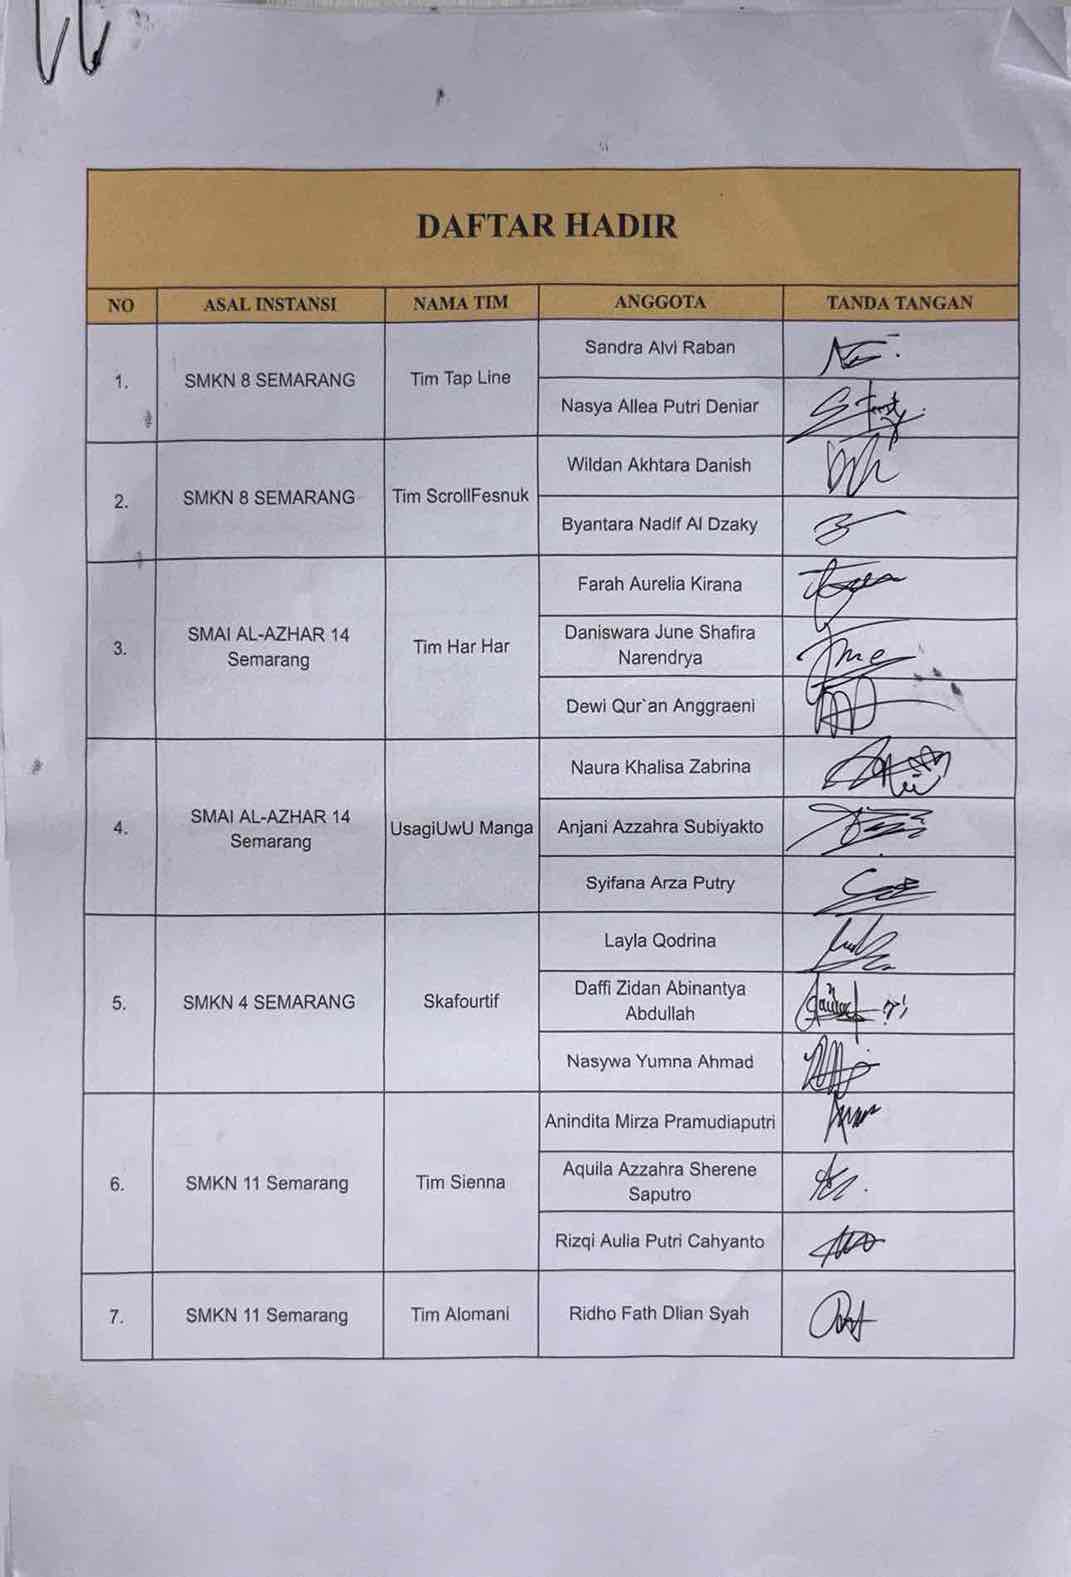 DAFTAR HADIR
NO ASAL INSTANSI NAMA TIM ANGGOTA TANDA TANGAN
1. SMKN 8 SEMARANG Tim Tap Line
Sandra Alvi Raban
Nasya Allea Putri Deniar
2. SMKN 8 SEMARANG Tim ScrollFesnuk
Wildan Akhtara Danish
Byantara Nadif Al Dzaky
3. SMAI AL-AZHAR 14
Semarang
Tim Har Har
Farah Aurelia Kirana
Daniswara June Shafira
Narendrya
Dewi Qur`an Anggraeni
4. SMAI AL-AZHAR 14
Semarang
UsagiUwU Manga
Naura Khalisa Zabrina
Anjani Azzahra Subiyakto
Syifana Arza Putry
5. SMKN 4 SEMARANG Skafourtif
Layla Qodrina
Daffi Zidan Abinantya
Abdullah
Nasywa Yumna Ahmad
6. SMKN 11 Semarang Tim Sienna
Anindita Mirza Pramudiaputri
Aquila Azzahra Sherene
Saputro
Rizqi Aulia Putri Cahyanto
7. SMKN 11 Semarang Tim Alomani Ridho Fath Dlian Syah